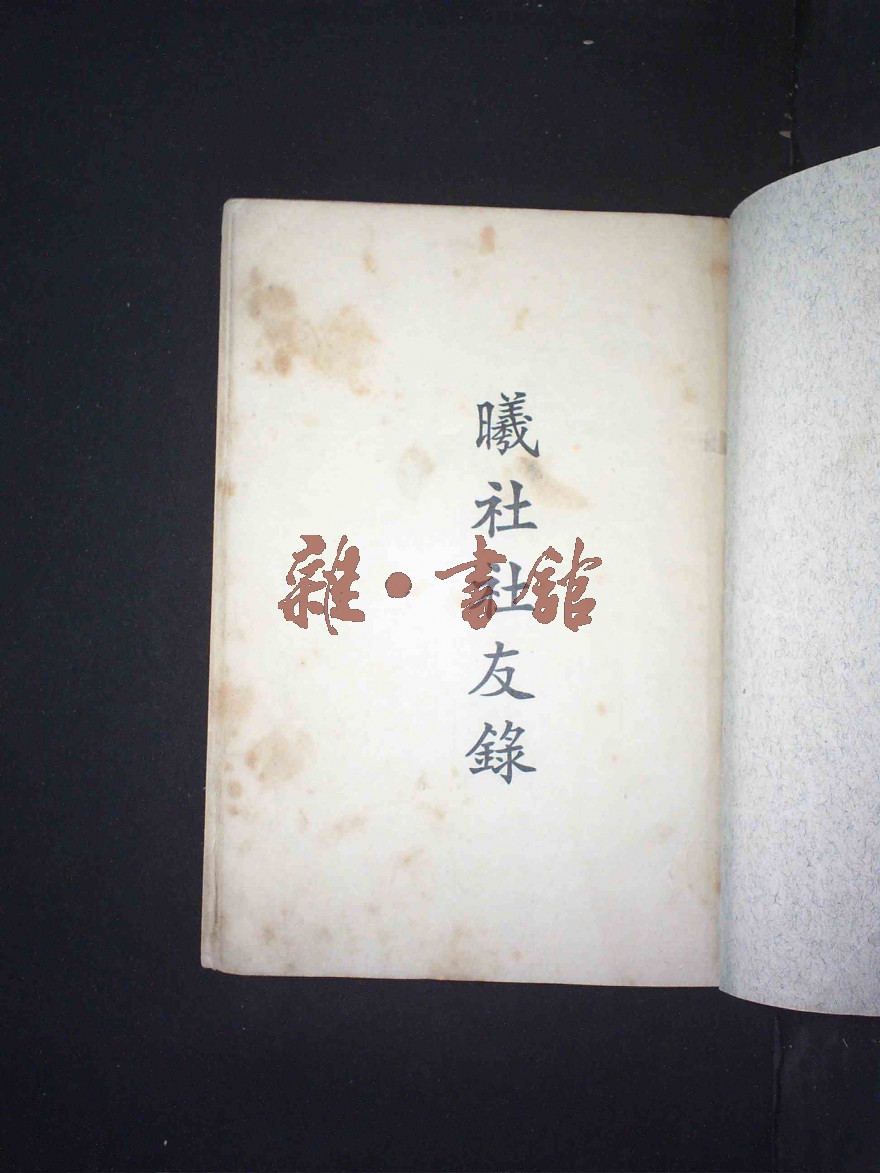 曦社社友錄
雜·書館